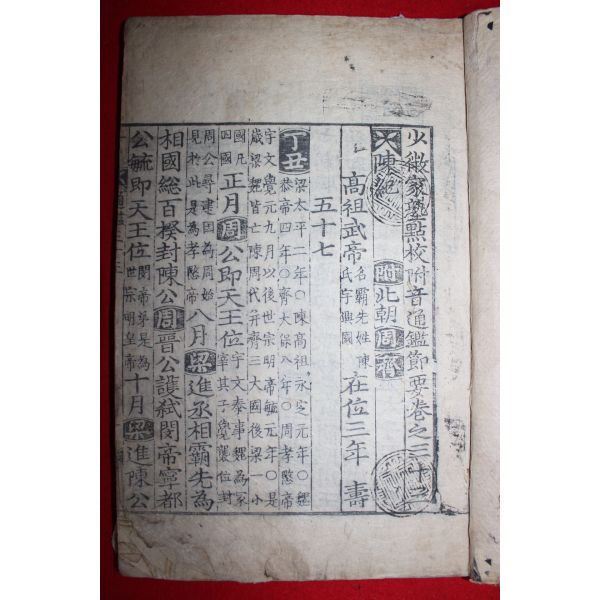 少微家塾點校附音通鑑節要卷之三十三
大陳紀 附北朝周齊
高祖武帝 名霸先姓陳氏字興國 在位三年 壽
五十七
丁丑 梁太平二年○陳高祖永定元年○魏恭帝四年○齊大保八年○周孝愍帝
宇文覺元九月以後世宗明帝毓元年○是歲梁魏皆亡陳周代幷齊三大國後梁一小
國凡四國 正月周公即天王位 宇文泰事魏為冢宰其子覺襲位封
周公尋建因為周始見於此是為孝愍帝 八月梁進丞相霸先為
相國總百揆封陳公周晉公護弑閔帝寧都
公毓即天王位 閔帝弟是為世宗明皇帝 十月梁進陳公